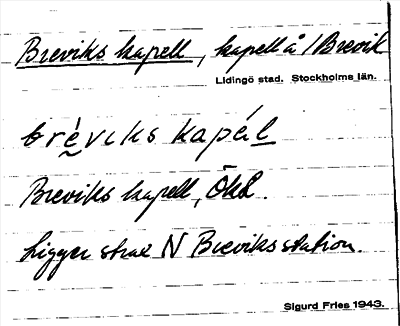 Breviks kapell, kapell å /Brevik
Lidingö stad. Stockholms län.
brèviks kapél
Breviks kapell, Ökl.
Ligger strax N Breviks station.
Sigurd Fries 1943.